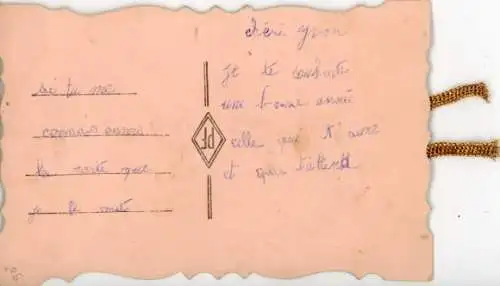 chéri yvon
je te souhaite
une bonne année
celle qui t'aime
et qui t'attend
si tu me
la carte que
je te
PF